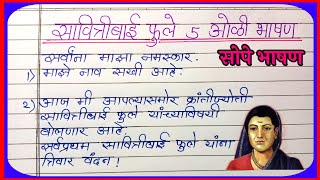 सावित्रीबाई फुले 5 ओळी भाषण
सोपे भाषण
सर्वांना माझा नमस्कार.
1) माझे नाव सखी आहे.
2) आज मी आपल्यासमोर क्रांतीज्योती
सावित्रीबाई फुले यांच्याविषयी
बोलणार आहे.
सर्वप्रथम सावित्रीबाई फुले यांना
त्रिवार वंदन!